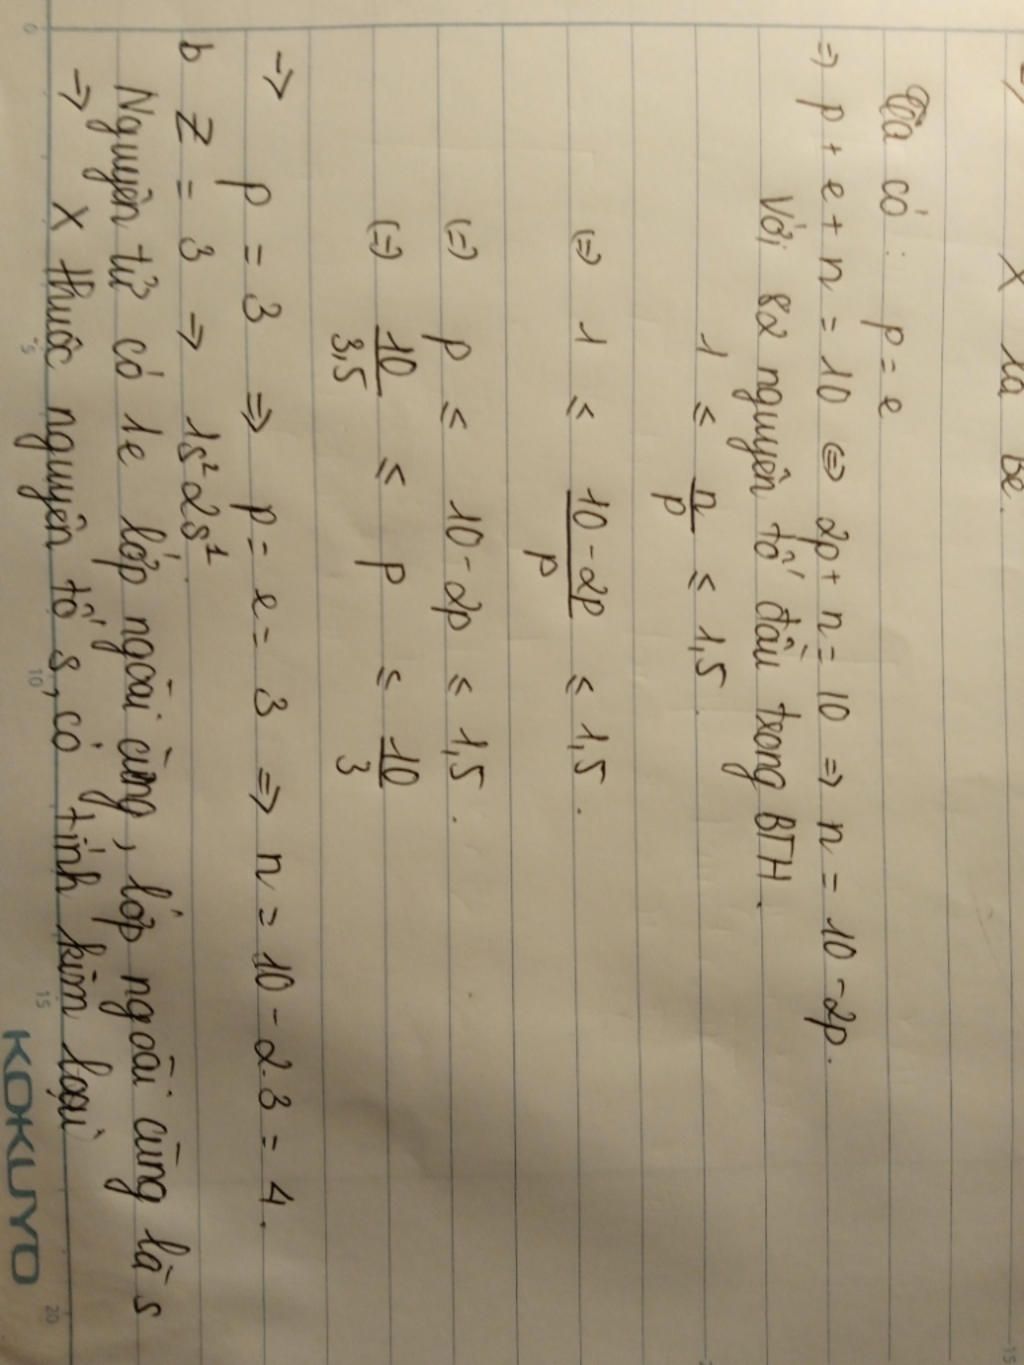 X là Be.
Ta có: p = e
=> p + e + n = 10 <=> 2p + n = 10 => n = 10 - 2p.
Với 82 nguyên tố đầu trong BTH.
1 ≤ n/p ≤ 1,5.
(=) 1 ≤ (10 - 2p)/p ≤ 1,5.
(=) p ≤ 10 - 2p ≤ 1,5.
(=) 10/3,5 ≤ p ≤ 10/3
-> p = 3 => p = e = 3 => n = 10 - 2.3 = 4.
b Z = 3 => 1s² 2s¹.
Nguyên tử có 1e lớp ngoài cùng, lớp ngoài cùng là s
-> X thuộc nguyên tố s, có tính kim loại
KOKUYO
0 5 10 15 20
15